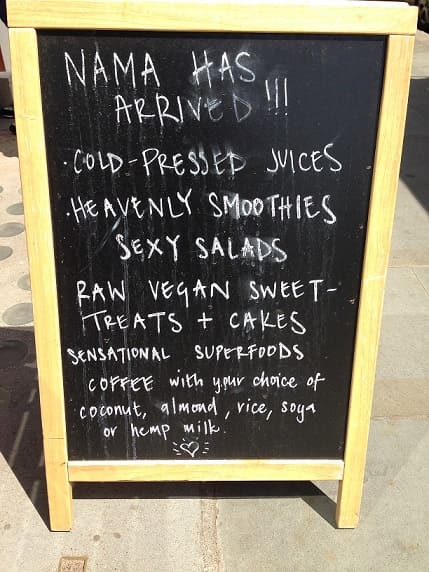 NAMA HAS
ARRIVED !!!
· COLD-PRESSED JUICES
· HEAVENLY SMOOTHIES
SEXY SALADS
RAW VEGAN SWEET-
TREATS + CAKES
SENSATIONAL SUPERFOODS
COFFEE with your choice of
coconut, almond, rice, soya
or hemp milk.